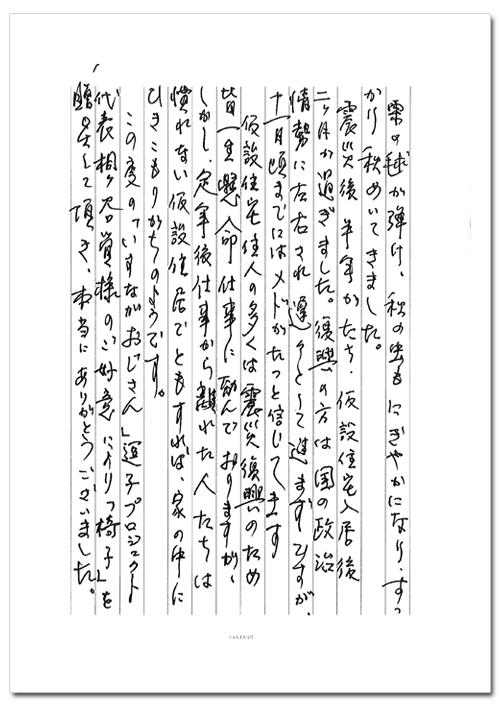 栗の毬が弾け、秋の虫もにぎやかになり、すっ
かり秋めいてきました。
震災後半年がたち、仮設住宅入居後
二ヶ月が過ぎました。復興の方は国の政治
情勢に左右され遅々として進まずですが、
十一月頃までにはメドがたつと信じてます
仮設住宅住人の多くは震災復興のため
皆一生懸命仕事に励んでおりますが、
しかし、定年後仕事から離れた人たちは
慣れない仮設住居でともすれば、家の中に
ひきこもりがちのようです。
この度の「いすながおじさん」逗子プロジェクト
代表桐ヶ谷覚様のご好意により「椅子」を
贈呈して頂き、本当にありがとうございました。